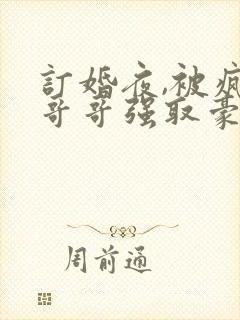 訂婚夜,被瘋
哥哥强取豪
周前通